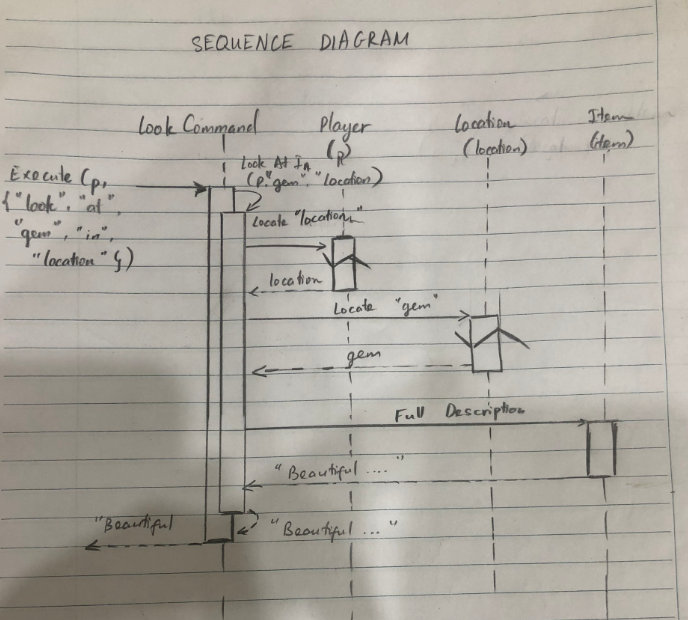 SEQUENCE DIAGRAM
Look Command
Player
(P)
Location
(location)
Item
(item)
Execute (p,
{"look", "at",
"gem", "in",
"location"})
Look At In
(P, "gem", "location)
Locate "location"
location
Locate "gem"
gem
Full Description
"Beautiful ...."
"Beautiful ... "
"Beautiful